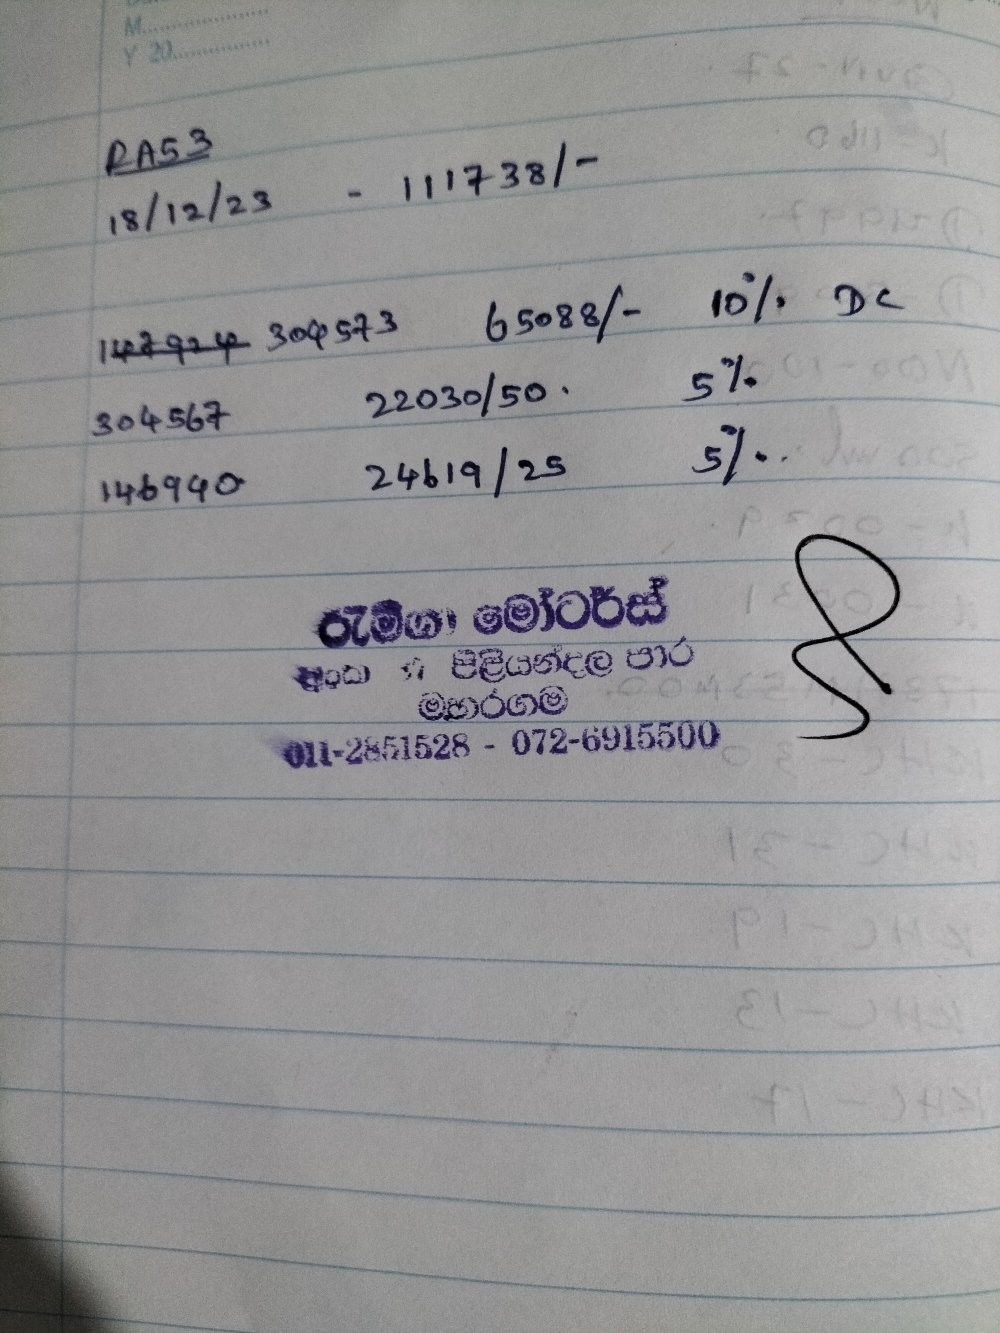 M..................
Y 20..................
RA53
18/12/23 - 111738/-
147924 304573 65088/- 10% DC
304567 22030/50. 5%
146940 24619/25 5%..
රැම්ගා මෝටර්ස්
අංක පිළියන්දල පාර
මහරගම
011-2851528 - 072-6915500